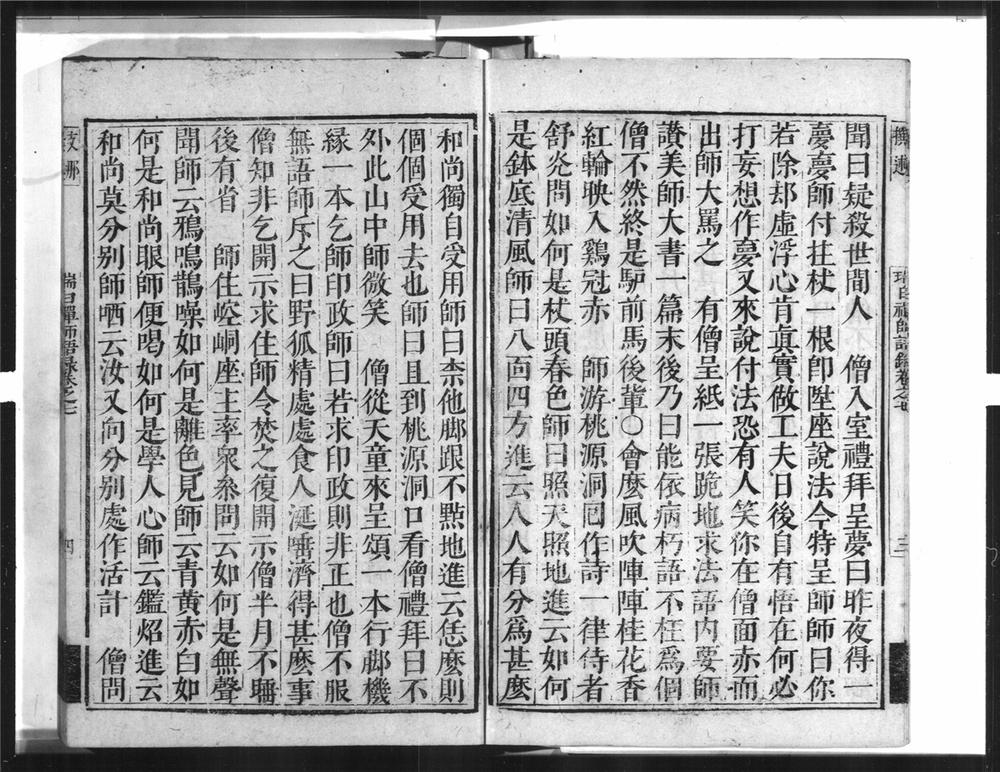 聞曰疑殺世間人　僧入室禮拜呈夢曰昨夜得一
夢夢師付拄杖一根卽陞座說法今特呈師師曰你
若除却虛浮心肯眞實做工夫日後自有悟在何必
打妄想作夢又來說付法恐有人笑你在僧面赤而
出師大罵之　有僧呈紙一張跪地求法語內要師
讃美師大書一篇末後乃曰能依病朽語不枉爲個
僧不然終是驢前馬後軰〇會麽風吹陣陣桂花香
紅輪映入鷄冠赤　師游桃源洞囘作詩一律侍者
舒炎問如何是杖頭春色師曰照天照地進云如何
是鉢底清風師曰八面四方進云人人有分爲甚麽
和尚獨自受用師曰柰他脚跟不㸃地進云恁麽則
個個受用去也師曰且到桃源洞口看僧禮拜曰不
外此山中師微笑　僧從天童來呈頌一本行脚機
緣一本乞師印政師曰若求印政則非正也僧不服
無語師斥之曰野狐精處處食人涎唾濟得甚麽事
僧知非乞開示求住師令焚之復開示僧半月不語
後有省　師住崆峒座主率衆叅問云如何是無聲
聞師云鴉鳴鵲噪如何是離色見師云靑黃赤白如
何是和尚眼師便喝如何是學人心師云鑑炤進云
和尚莫分別師哂云汝又向分別處作活計　僧問
支那
瑞白禪師語錄卷之七
四
瑞白禪師語錄卷之七
三